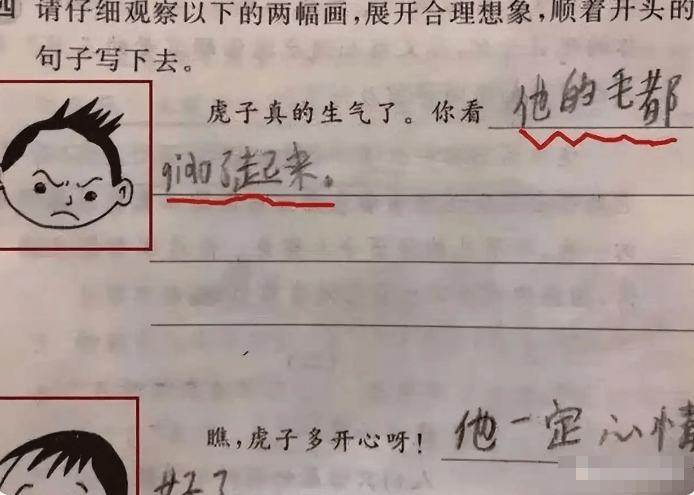 四 请仔细观察以下的两幅画,展开合理想象,顺着开头的
句子写下去。
虎子真的生气了。你看 他的毛都
qiào了起来。
瞧,虎子多开心呀! 他一定心情
好了